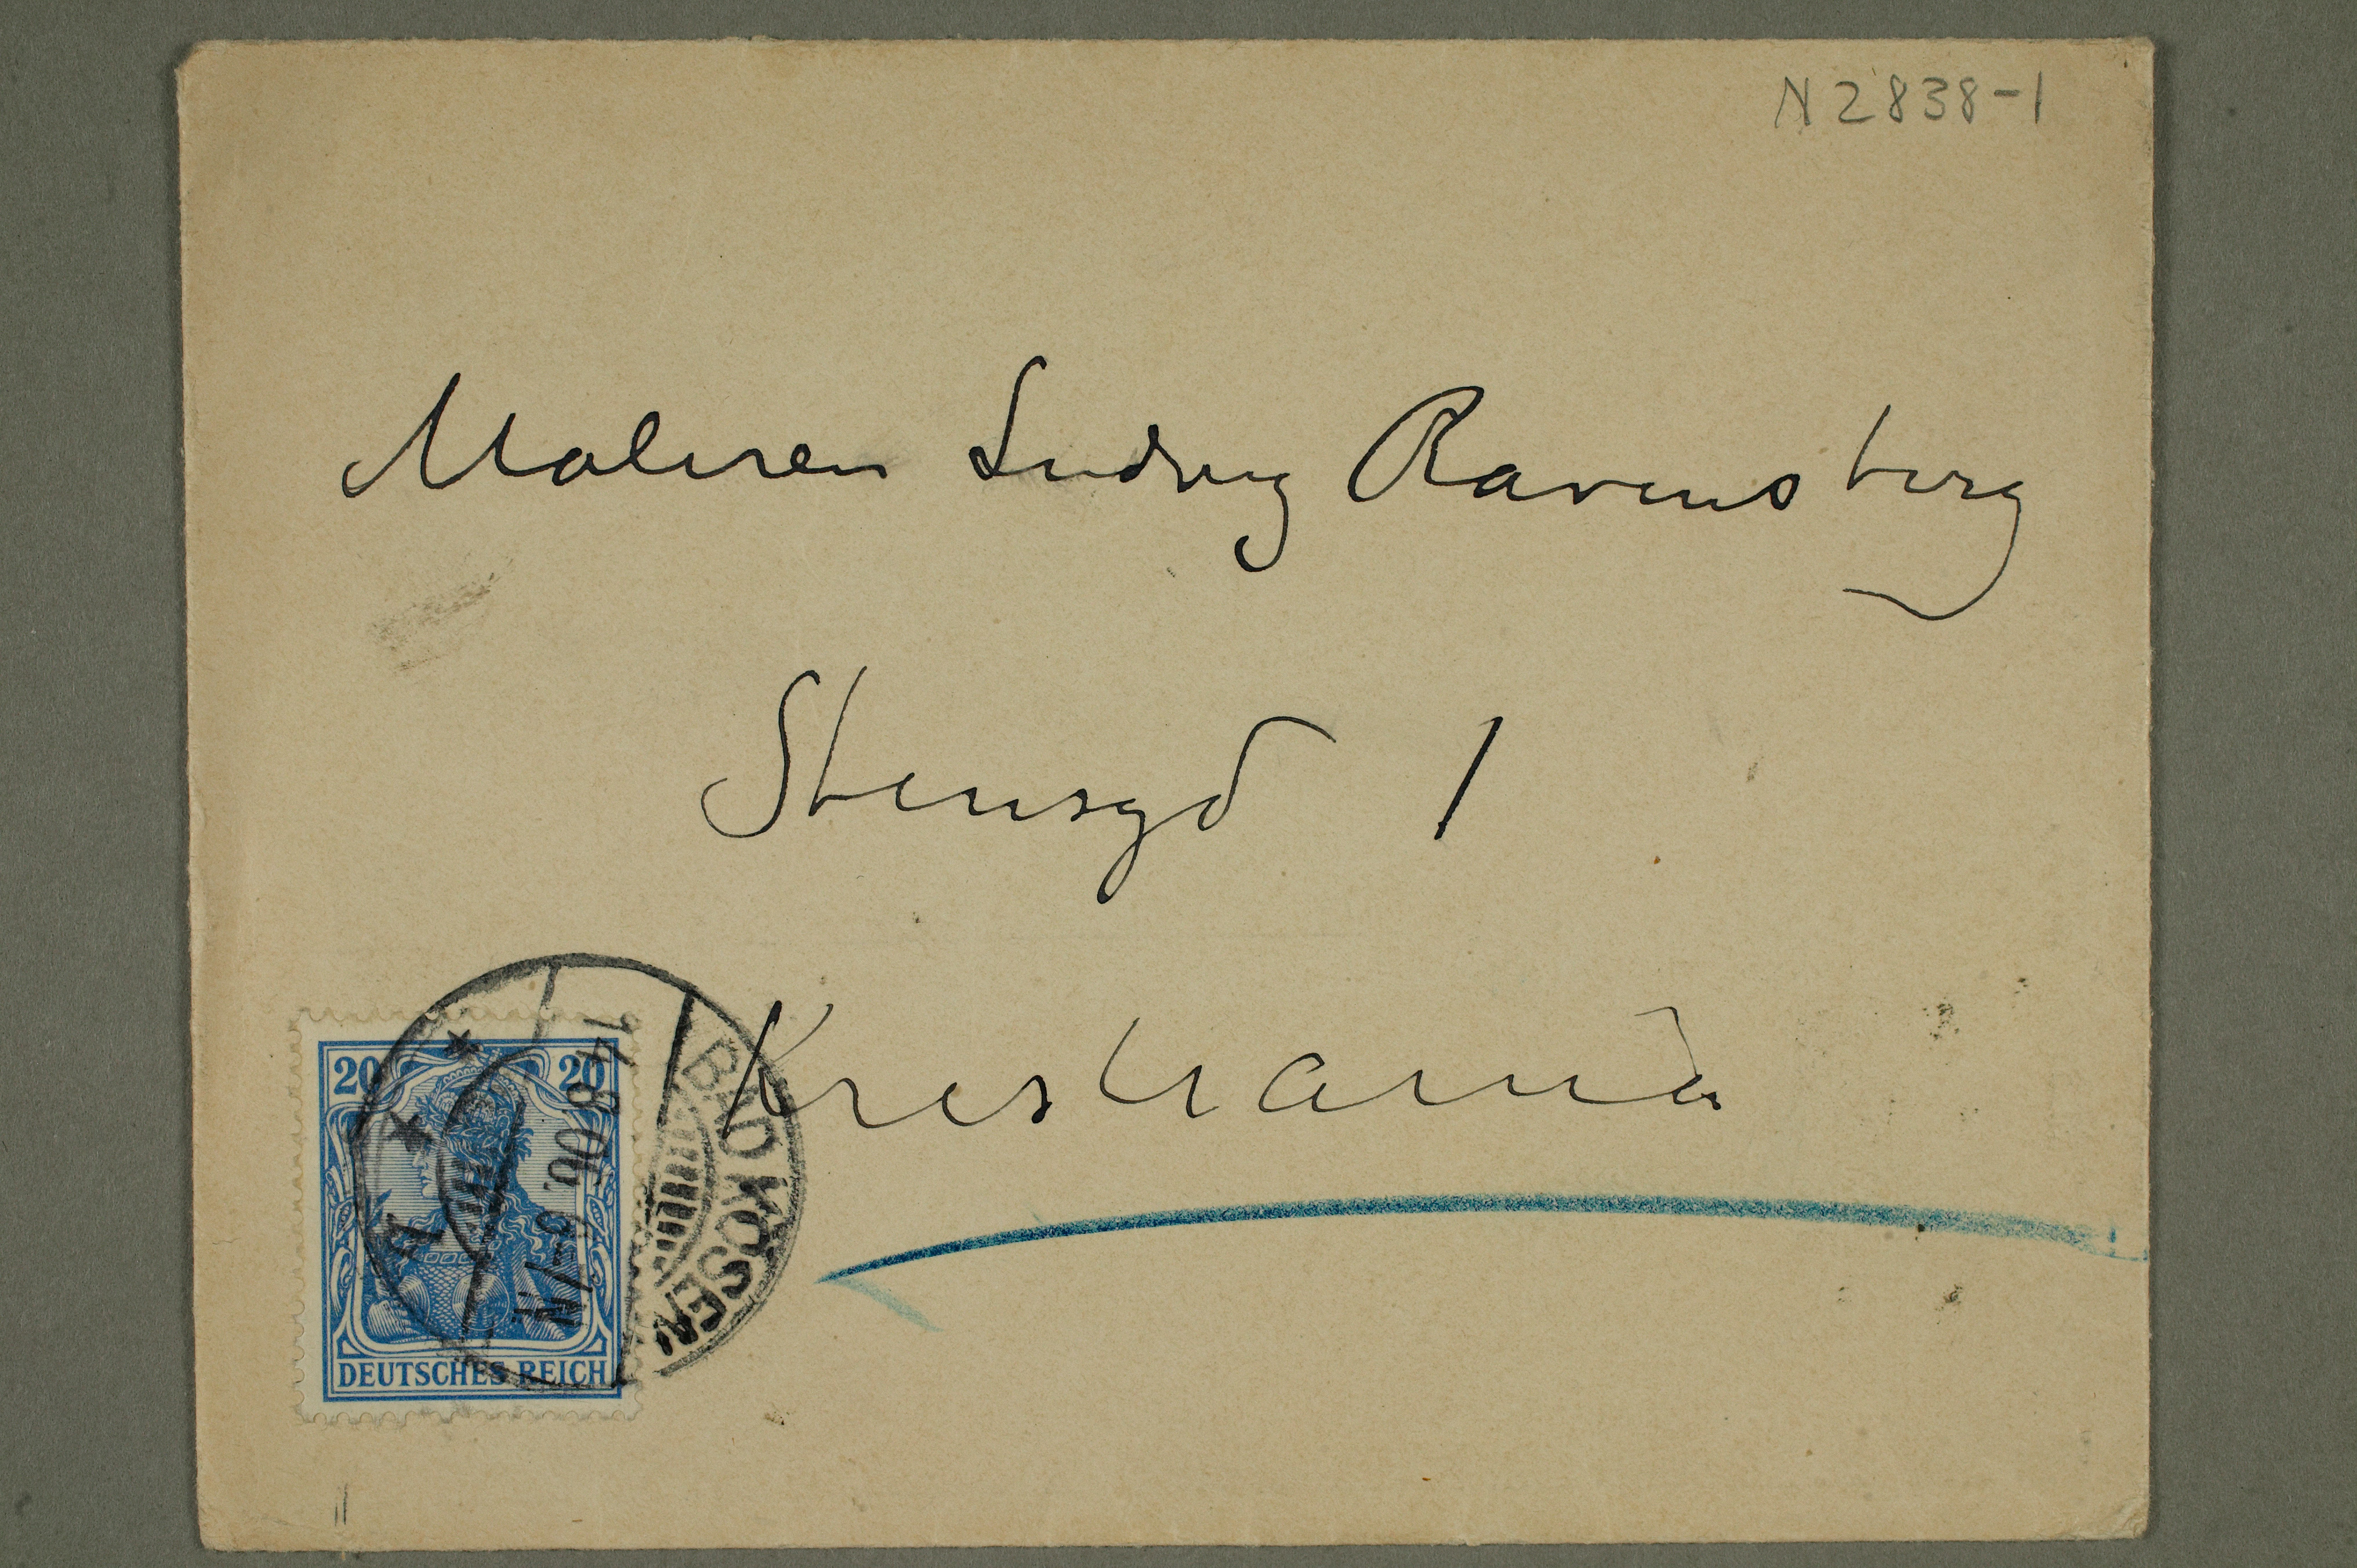 N 2838-1
Maleren Ludvig Ravensberg
Stensgd 1
Kristiania
20 20
DEUTSCHES REICH
BAD KÖSEN